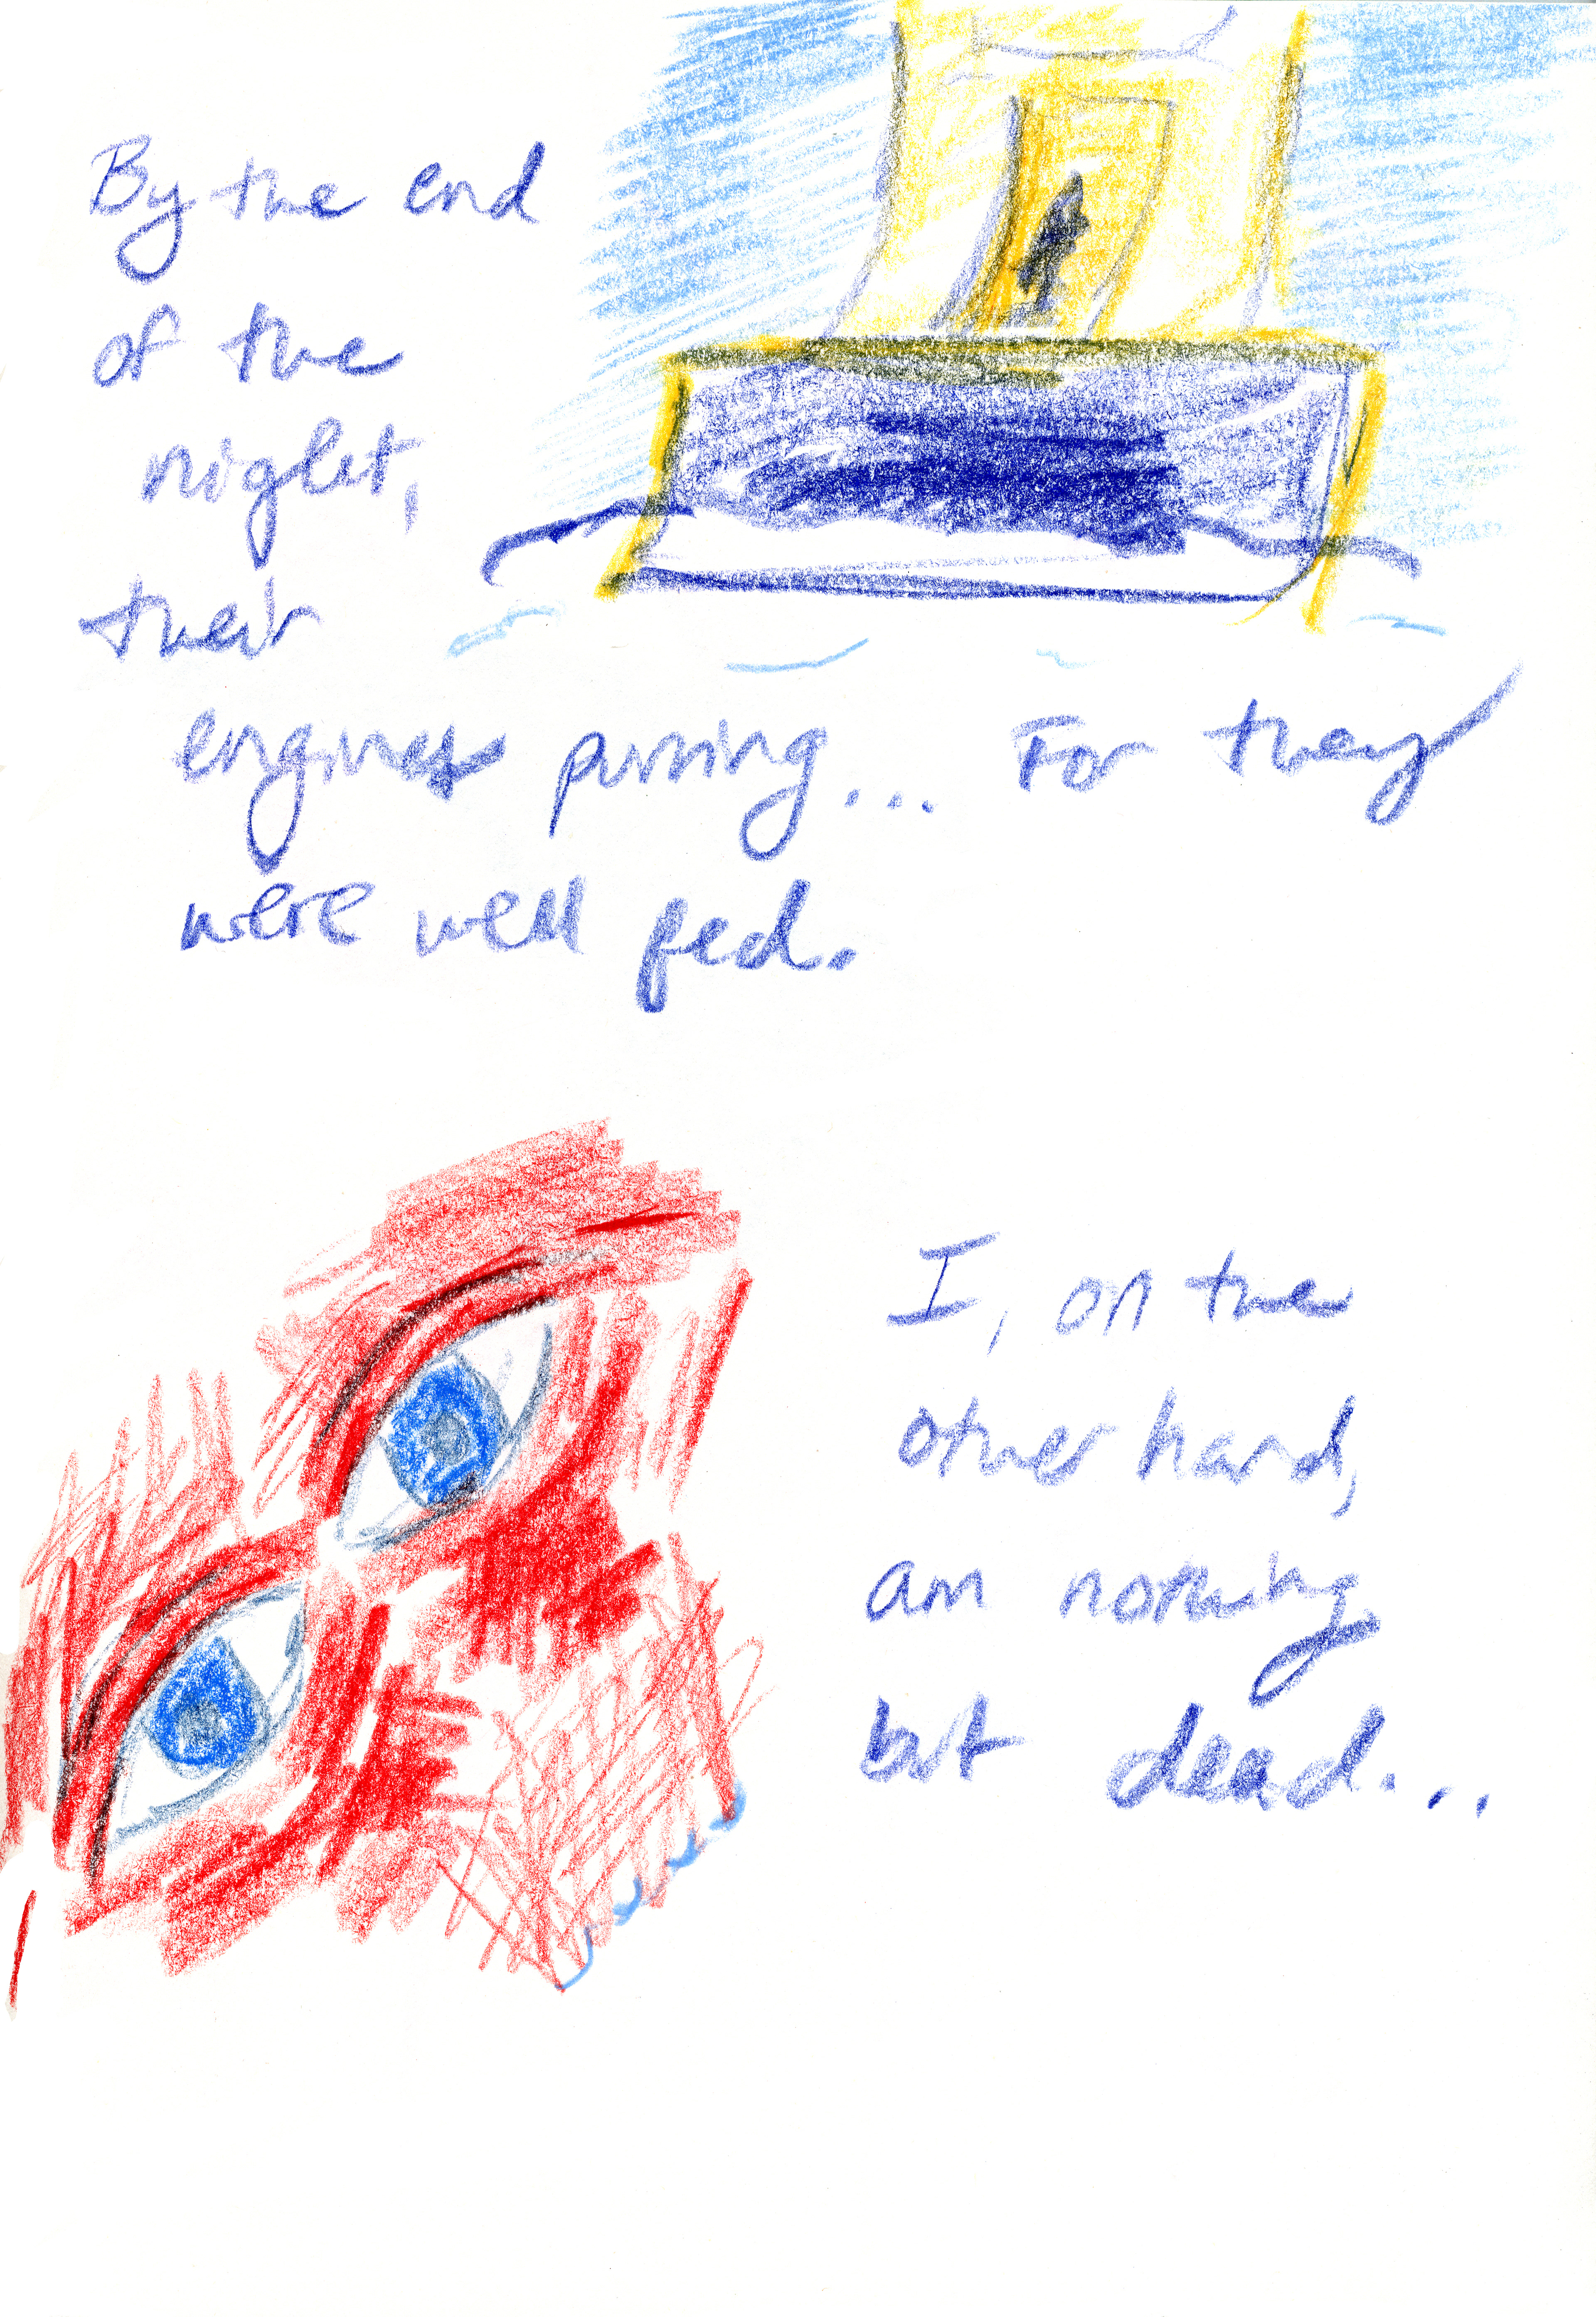 By the end
of the
night,
their
engines purring... For they
were well fed.
I, on the
other hand,
am nothing
but dead...